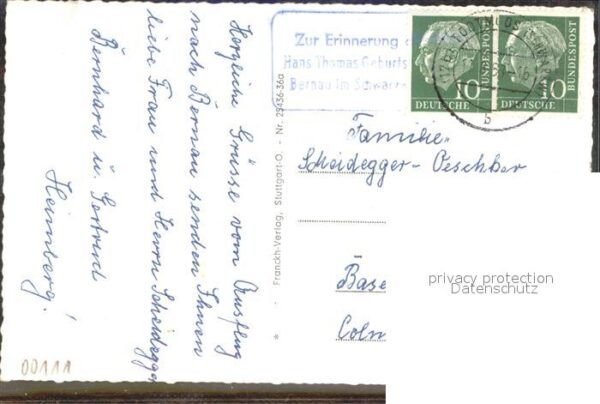 Herzliche Grüsse vom Ausflug
nach Bernau senden Ihnen
liebe Frau und Herrn Scheidegger
Bernhard u. Gertrud
Heimberg!
* Franckh-Verlag, Stuttgart-O. - Nr. 25436-36a
Zur Erinnerung
Hans Thomas Geburts
Bernau im Schwarz
10
DEUTSCHE
BUNDESPOST
10
DEUTSCHE
BUNDESPOST
b
Familie
Scheidegger-Oeschber
Base
Colm
privacy protection
Datenschutz
00111